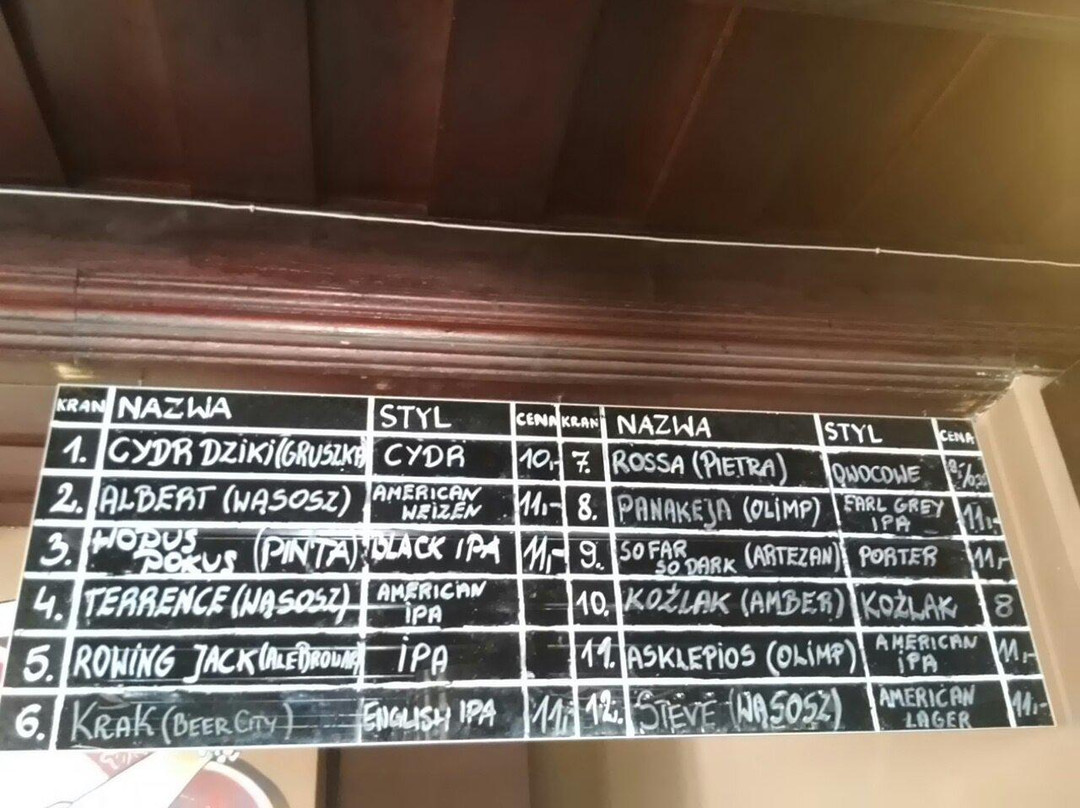 KRAN NAZWA STYL CENA KRAN NAZWA STYL CENA
1. CYDR DZIKI (GRUSZKA) CYDR 10,- 7. ROSSA (PIETRA) OWOCOWE
2. ALBERT (WĄSOSZ) AMERICAN WEIZEN 11,- 8. PANAKEJA (OLIMP) EARL GREY IPA 11,-
3. HOPUS POKUS (PINTA) BLACK IPA 11,- 9. SO FAR SO DARK (ARTEZAN) PORTER 11,-
4. TERRENCE (WĄSOSZ) AMERICAN IPA 10. KOŹLAK (AMBER) KOŹLAK 8
5. ROWING JACK (ALEBROWAR) IPA 11. ASKLEPIOS (OLIMP) AMERICAN IPA 11,-
6. KRAK (BEER CITY) ENGLISH IPA 11,- 12. STEVE (WĄSOSZ) AMERICAN LAGER 11,-